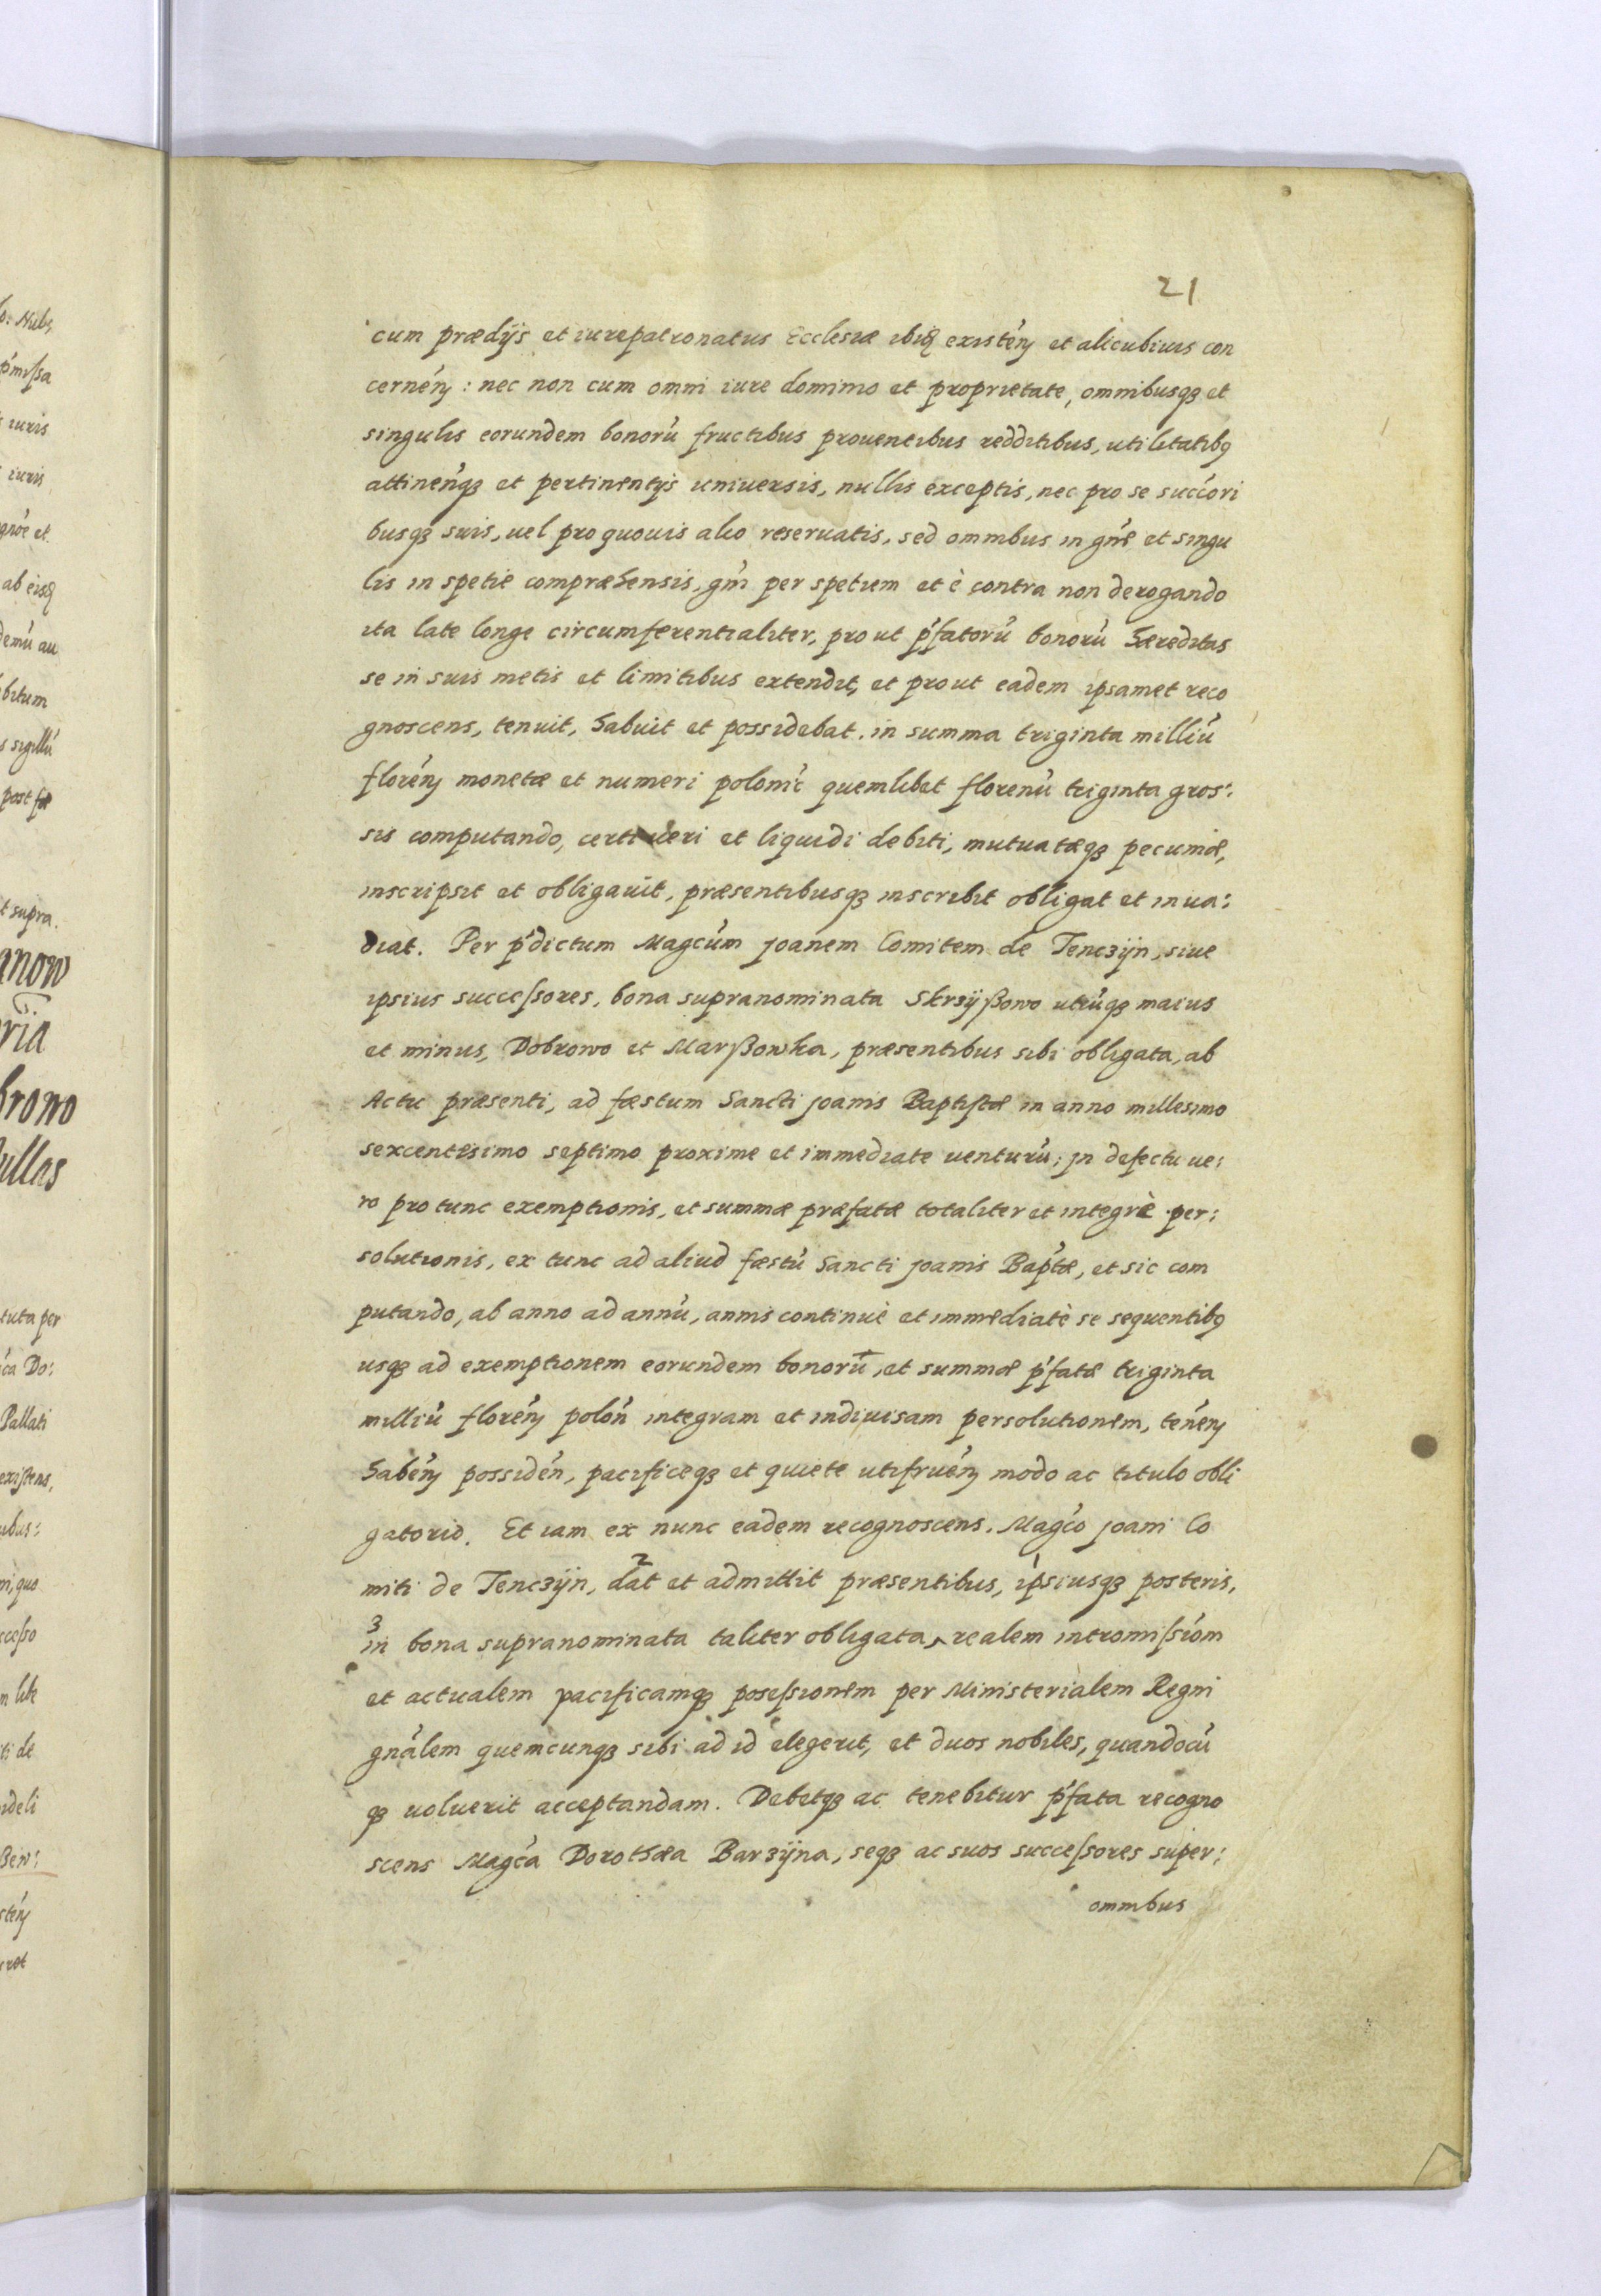 21
cum prædijs et iurepatronatus Ecclesiæ ibiq existen̄ et alicubiuis con
cernen̄: nec non cum omni iure dominio et proprietate, omnibusqꝫ et
singulis eorundem bonorū fructibus prouentibus redditibus, utilitatibꝰ
attinen̄qꝫ et pertinentijs uniuersis, nullis exceptis, nec pro se succ̄ori
busqꝫ suis, uel pro quouis alio reseruatis, sed omnibus in gn̄e et singu
lis in spetie compræhensis, gn̄i per spetiem et è contra non derogando
ita late longe circumferentialiter, prout p̄fatorū bonorū hæreditas
se in suis metis et limitibus extendit, et prout eadem ipsamet reco
gnoscens, tenuit, habuit et possidebat. in summa triginta milliū
floren̄ monetæ et numeri polonic̄ quemlibet florenū triginta gros:
sis computando, certi ueri et liquidi debiti, mutuatæqꝫ pecuniæ,
inscripsit et obligauit, præsentibusqꝫ inscribit obligat et inua:
diat. Per p̄dictum Magcūm Joanem Comitem de Tenczijn, siue
ipsius successores, bona supranominata Skrzijßowo utrūqꝫ maius
et minus, Dobrowo et Marßowka, præsentibus sibi obligata, ab
Actu præsenti, ad fæstum Sancti Joanis Baptistæ in anno millesimo
sexcentesimo septimo proxime et immediate uenturū; in defectu ue:
ro pro tunc exemptionis, et summæ præfatæ totaliter et integrè per:
solutionis, ex tunc ad aliud fæstū Sancti Joanis Bap̄tæ, et sic com
putando, ab anno ad annū, annis continuè et immediatè se sequentibꝰ
usqꝫ ad exemptionem eorundem bonorū, et summæ p̄fatæ triginta
milliū floren̄ polon̄ integram et indiuisam persolutionem, tenen̄
haben̄ possiden̄, pacificeqꝫ et quiete utifruen̄ modo ac titulo obli
gatorio. Et iam ex nunc eadem recognoscens, Magc̄o Joani Co
2 1
miti de Tenczijn, dat et admittit præsentibus, ipsiusqꝫ posteris,
3
in bona supranominata taliter obligata, realem intromissiōm
et actualem pacificamqꝫ posessionem per Ministerialem Regni
gnālem quemcunqꝫ sibi ad id elegerit, et duos nobiles, quandocū
qꝫ uoluerit acceptandam. Debetqꝫ ac tenebitur p̄fata recogno
scens Magc̄a Dorothæa Barzijna, seqꝫ ac suos successores super:
omnibus